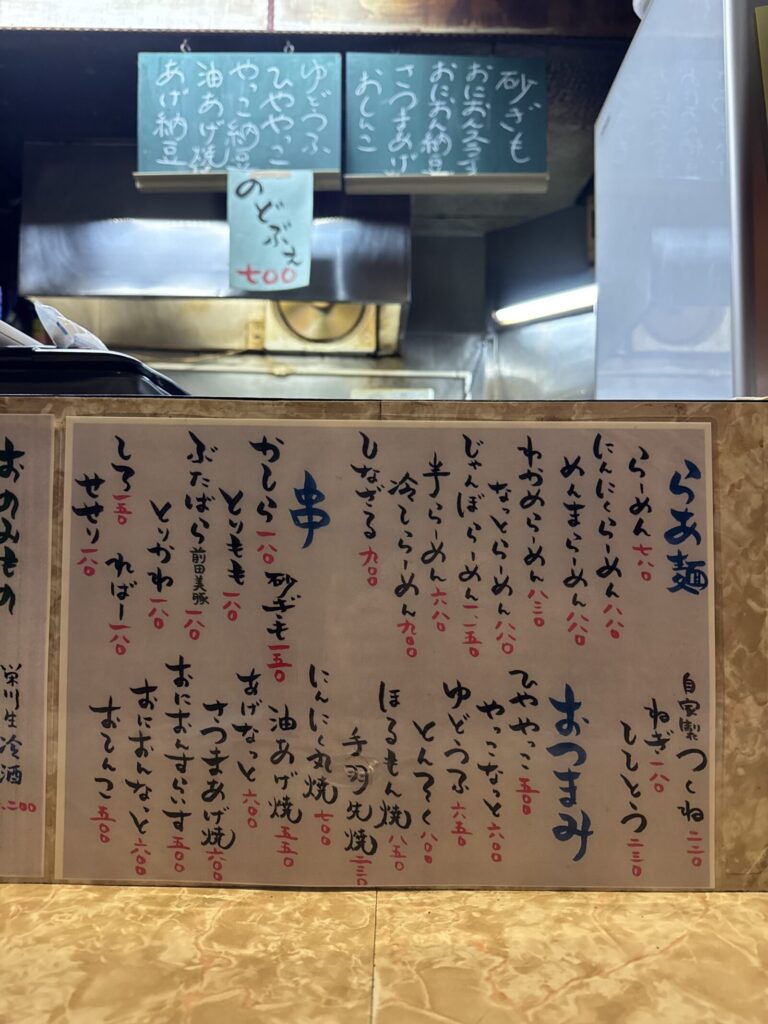 砂ぎも
おにおん
おにおん納豆
さつまあげ
おしんこ
ゆどうふ
ひややっこ
やっこ納豆
油あげ焼
あげ納豆
のどぶえ
七00
らあ麺
らーめん 七八0
にんにくらーめん 八八0
めんまらーめん 八八0
わかめらーめん 八三0
なっとらーめん 八八0
じゃんぼらーめん 一、一五0
半らーめん 六八0
冷しらーめん 九00
しなざる 九00
串
かしら 一八0
砂ぎも 一五0
とりもも 一八0
ぶたばら 前田美豚 一八0
とりかわ 一八0
しろ 一五0
ればー 一八0
せせり 一八0
自家製つくね 二二0
ねぎ 一八0
ししとう 二三0
おつまみ
ひややっこ 五00
やっこなっと 六00
ゆどうふ 六五0
とんそく 八00
ほるもん焼 八五0
手羽先焼 二三0
にんにく丸焼 七00
油あげ焼 五五0
あげなっと 六00
さつまあげ焼 六00
おにおんすらいす 五00
おにおんなっと 六00
おしんこ 五00
おのみもの
栄川生冷酒